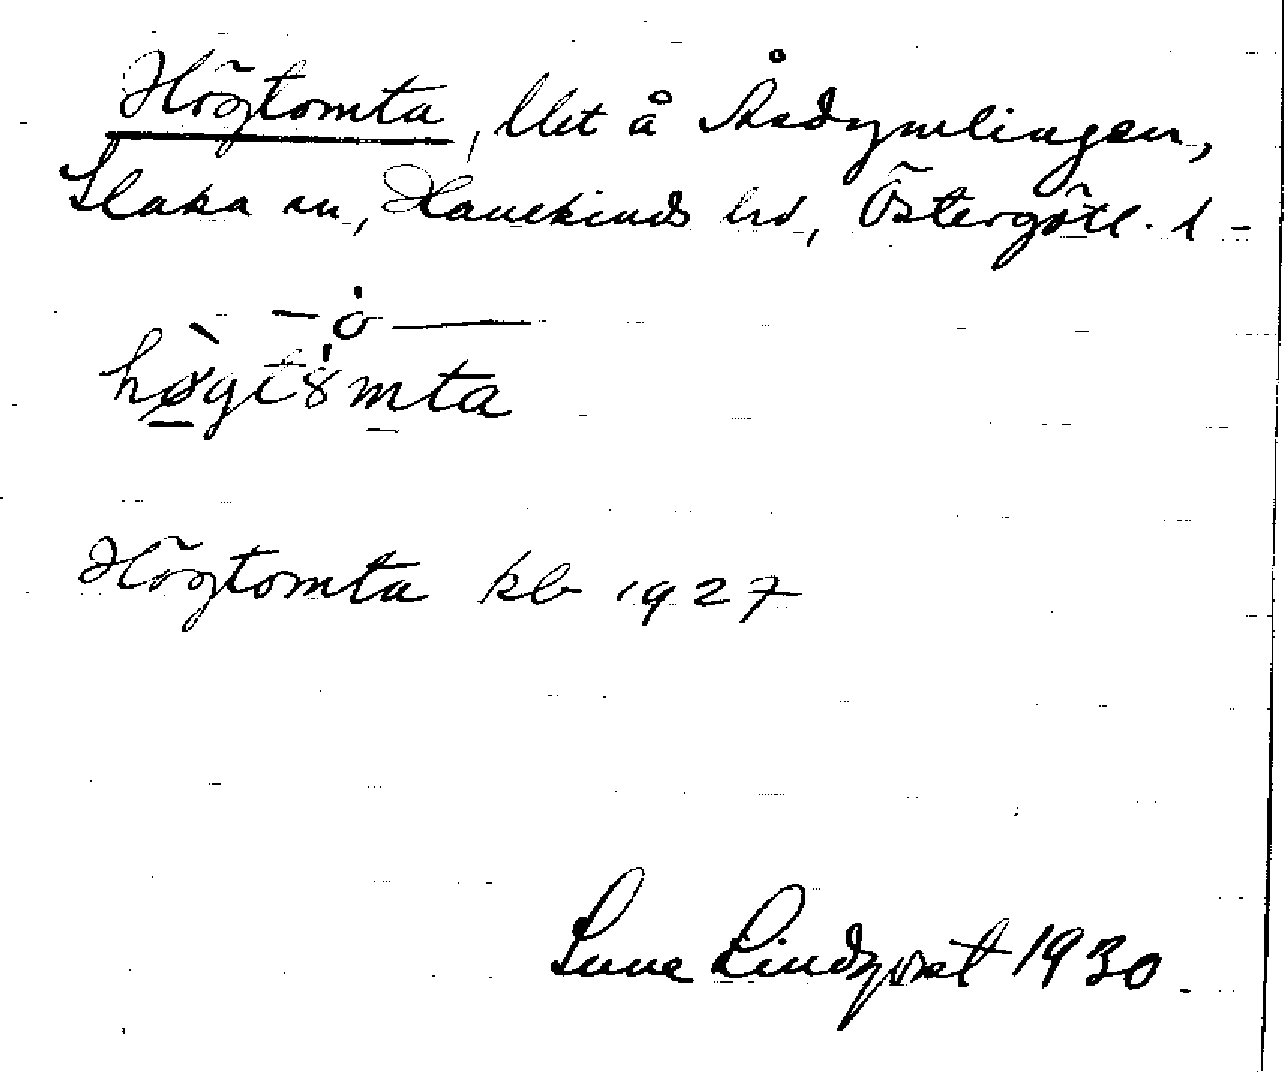 Högtomta, lht å Åsdymlingen,
Slaka sn, Hanekinds hd, Östergötl. l -
— o ——
høgtomta
Högtomta kb 1927
Sune Lindqvist 1930.